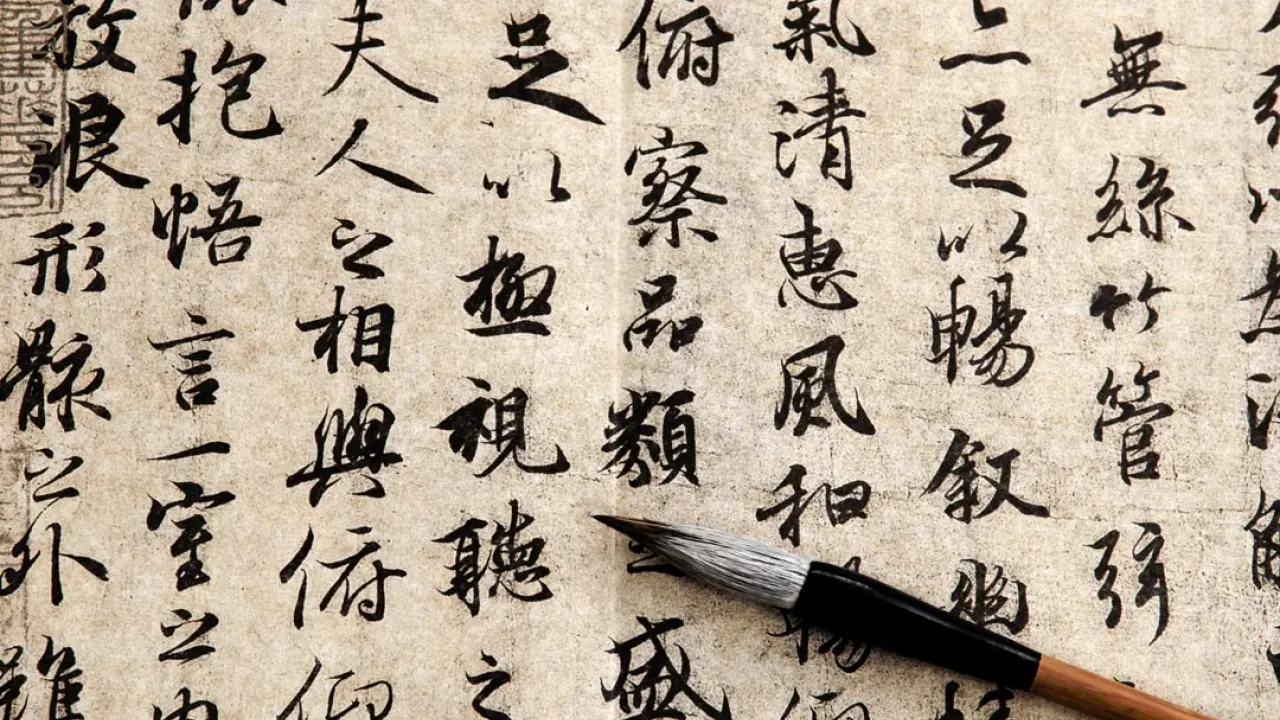 無絲竹管弦
亦足以暢叙幽情
氣清惠風和暢仰
俯察品類盛
足以極視聽之
夫人之相與俯仰
抱悟言一室之内
放浪形骸之外雖